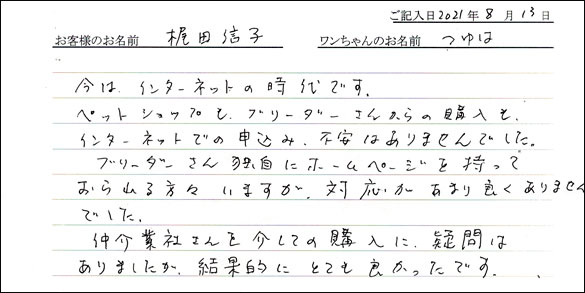 ご記入日2021年 8 月 13 日
お客様のお名前 梶田信子 ワンちゃんのお名前 つゆは
今は、インターネットの時代です。
ペットショップも、ブリーダーさんからの購入も、
インターネットでの申込み、不安はありませんでした。
ブリーダーさん独自にホームページを持って
おられる方々いますが、対応があまり良くありません
でした。
仲介業社さんを介しての購入に、疑問は
ありましたが、結果的にとても良かったです。